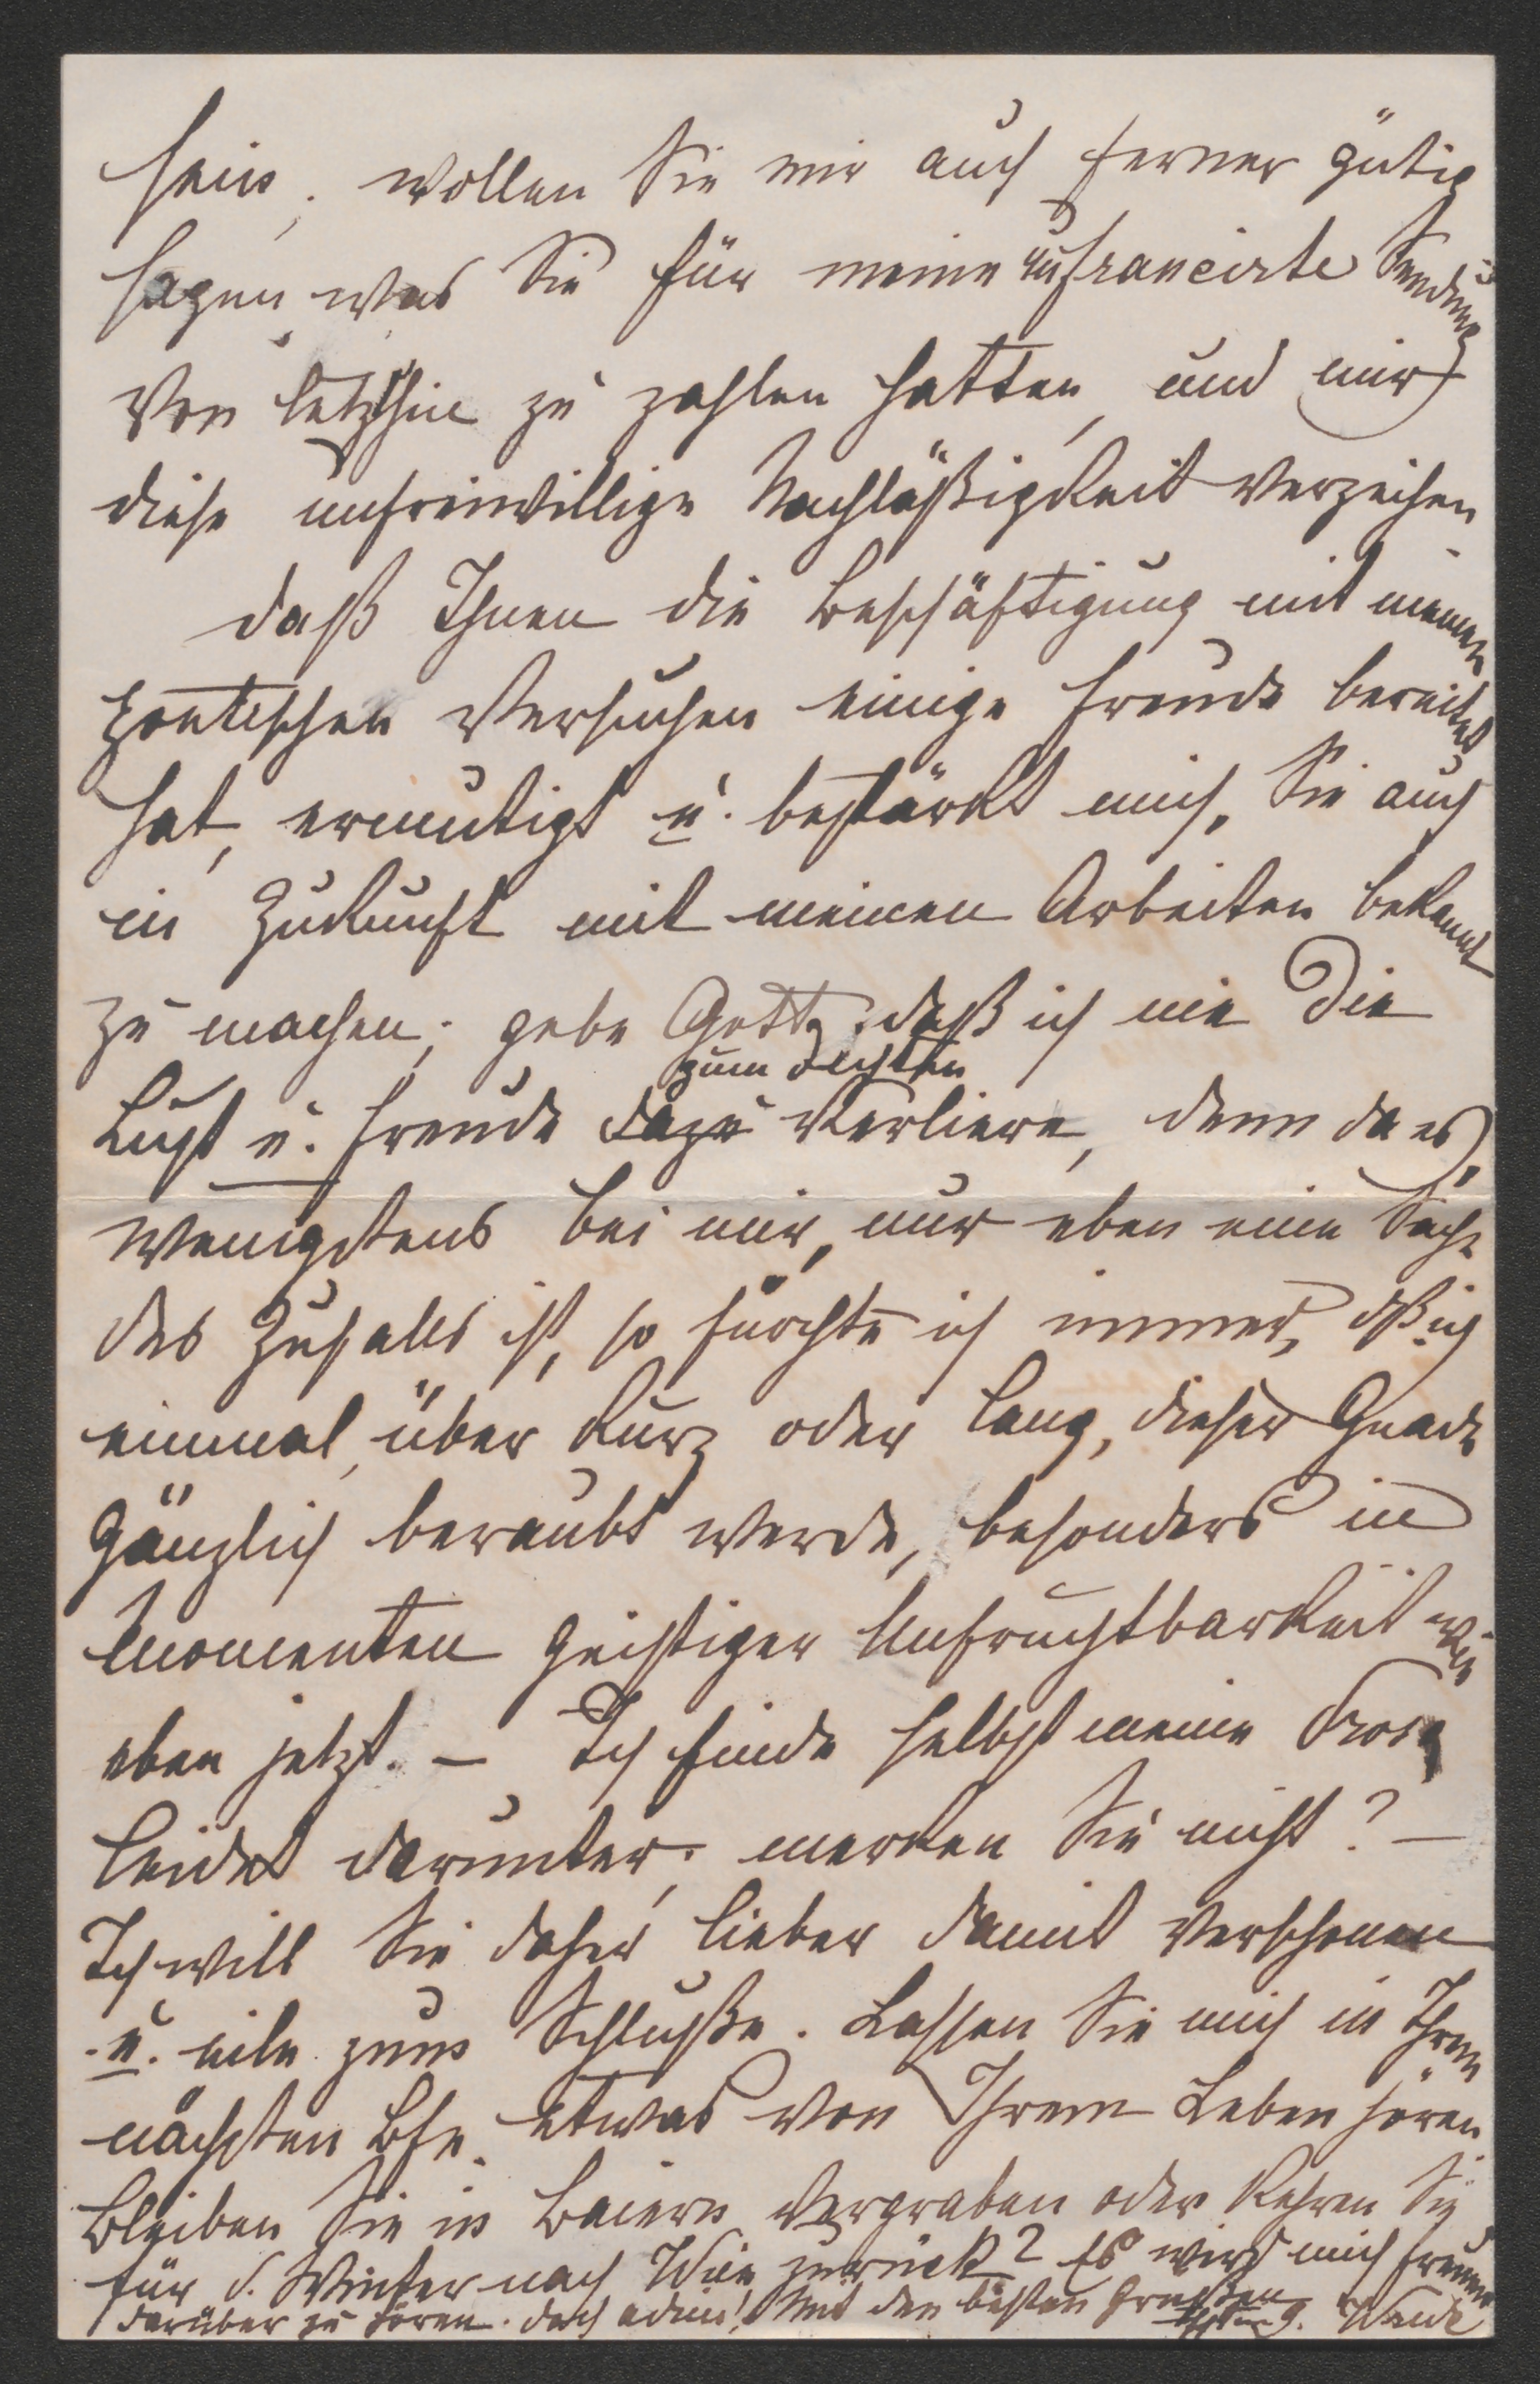 sein; wollen Sie mir auch ferner gütig
sagen, was Sie für meine unfrancirte Sendung
von letzthin zu zahlen hatten, und mir
diese unfreiwillige Nachläßigkeit verzeihen.
Daß Ihnen die Beschäftigung mit meinen
poetischen Versuchen einige Freude bereitet
hat, ermutigt u. bestärkt mich, Sie auch
in Zukunft mit meinen Arbeiten bekannt
zu machen; gebe Gott, daß ich nie die
zum Dichten
Lust u. Freude dazu verliere, denn da es,
wenigstens bei mir, nur eben eine Sache
des Zufalls ist, so fürchte ich immer, dß ich
einmal, über kurz oder lang, dieser Gnade
gänzlich beraubt werde, besonders in
Momenten geistiger Unfruchtbarkeit wie
eben jetzt. – Ich finde selbst meine Prosa
leidet darunter; merken Sie nicht? –
Ich will Sie daher lieber damit verschonen
u. eile zum Schluße. Lassen Sie mich in Ihrem
nächsten Bfe. etwas von Ihrem Leben hören.
Bleiben Sie in Baiern vergraben oder kehren Sie
für d. Winter nach Wien zurück? Es wird mich freuen
darüber zu hören. Doch adieu! Mit den besten Grüßen